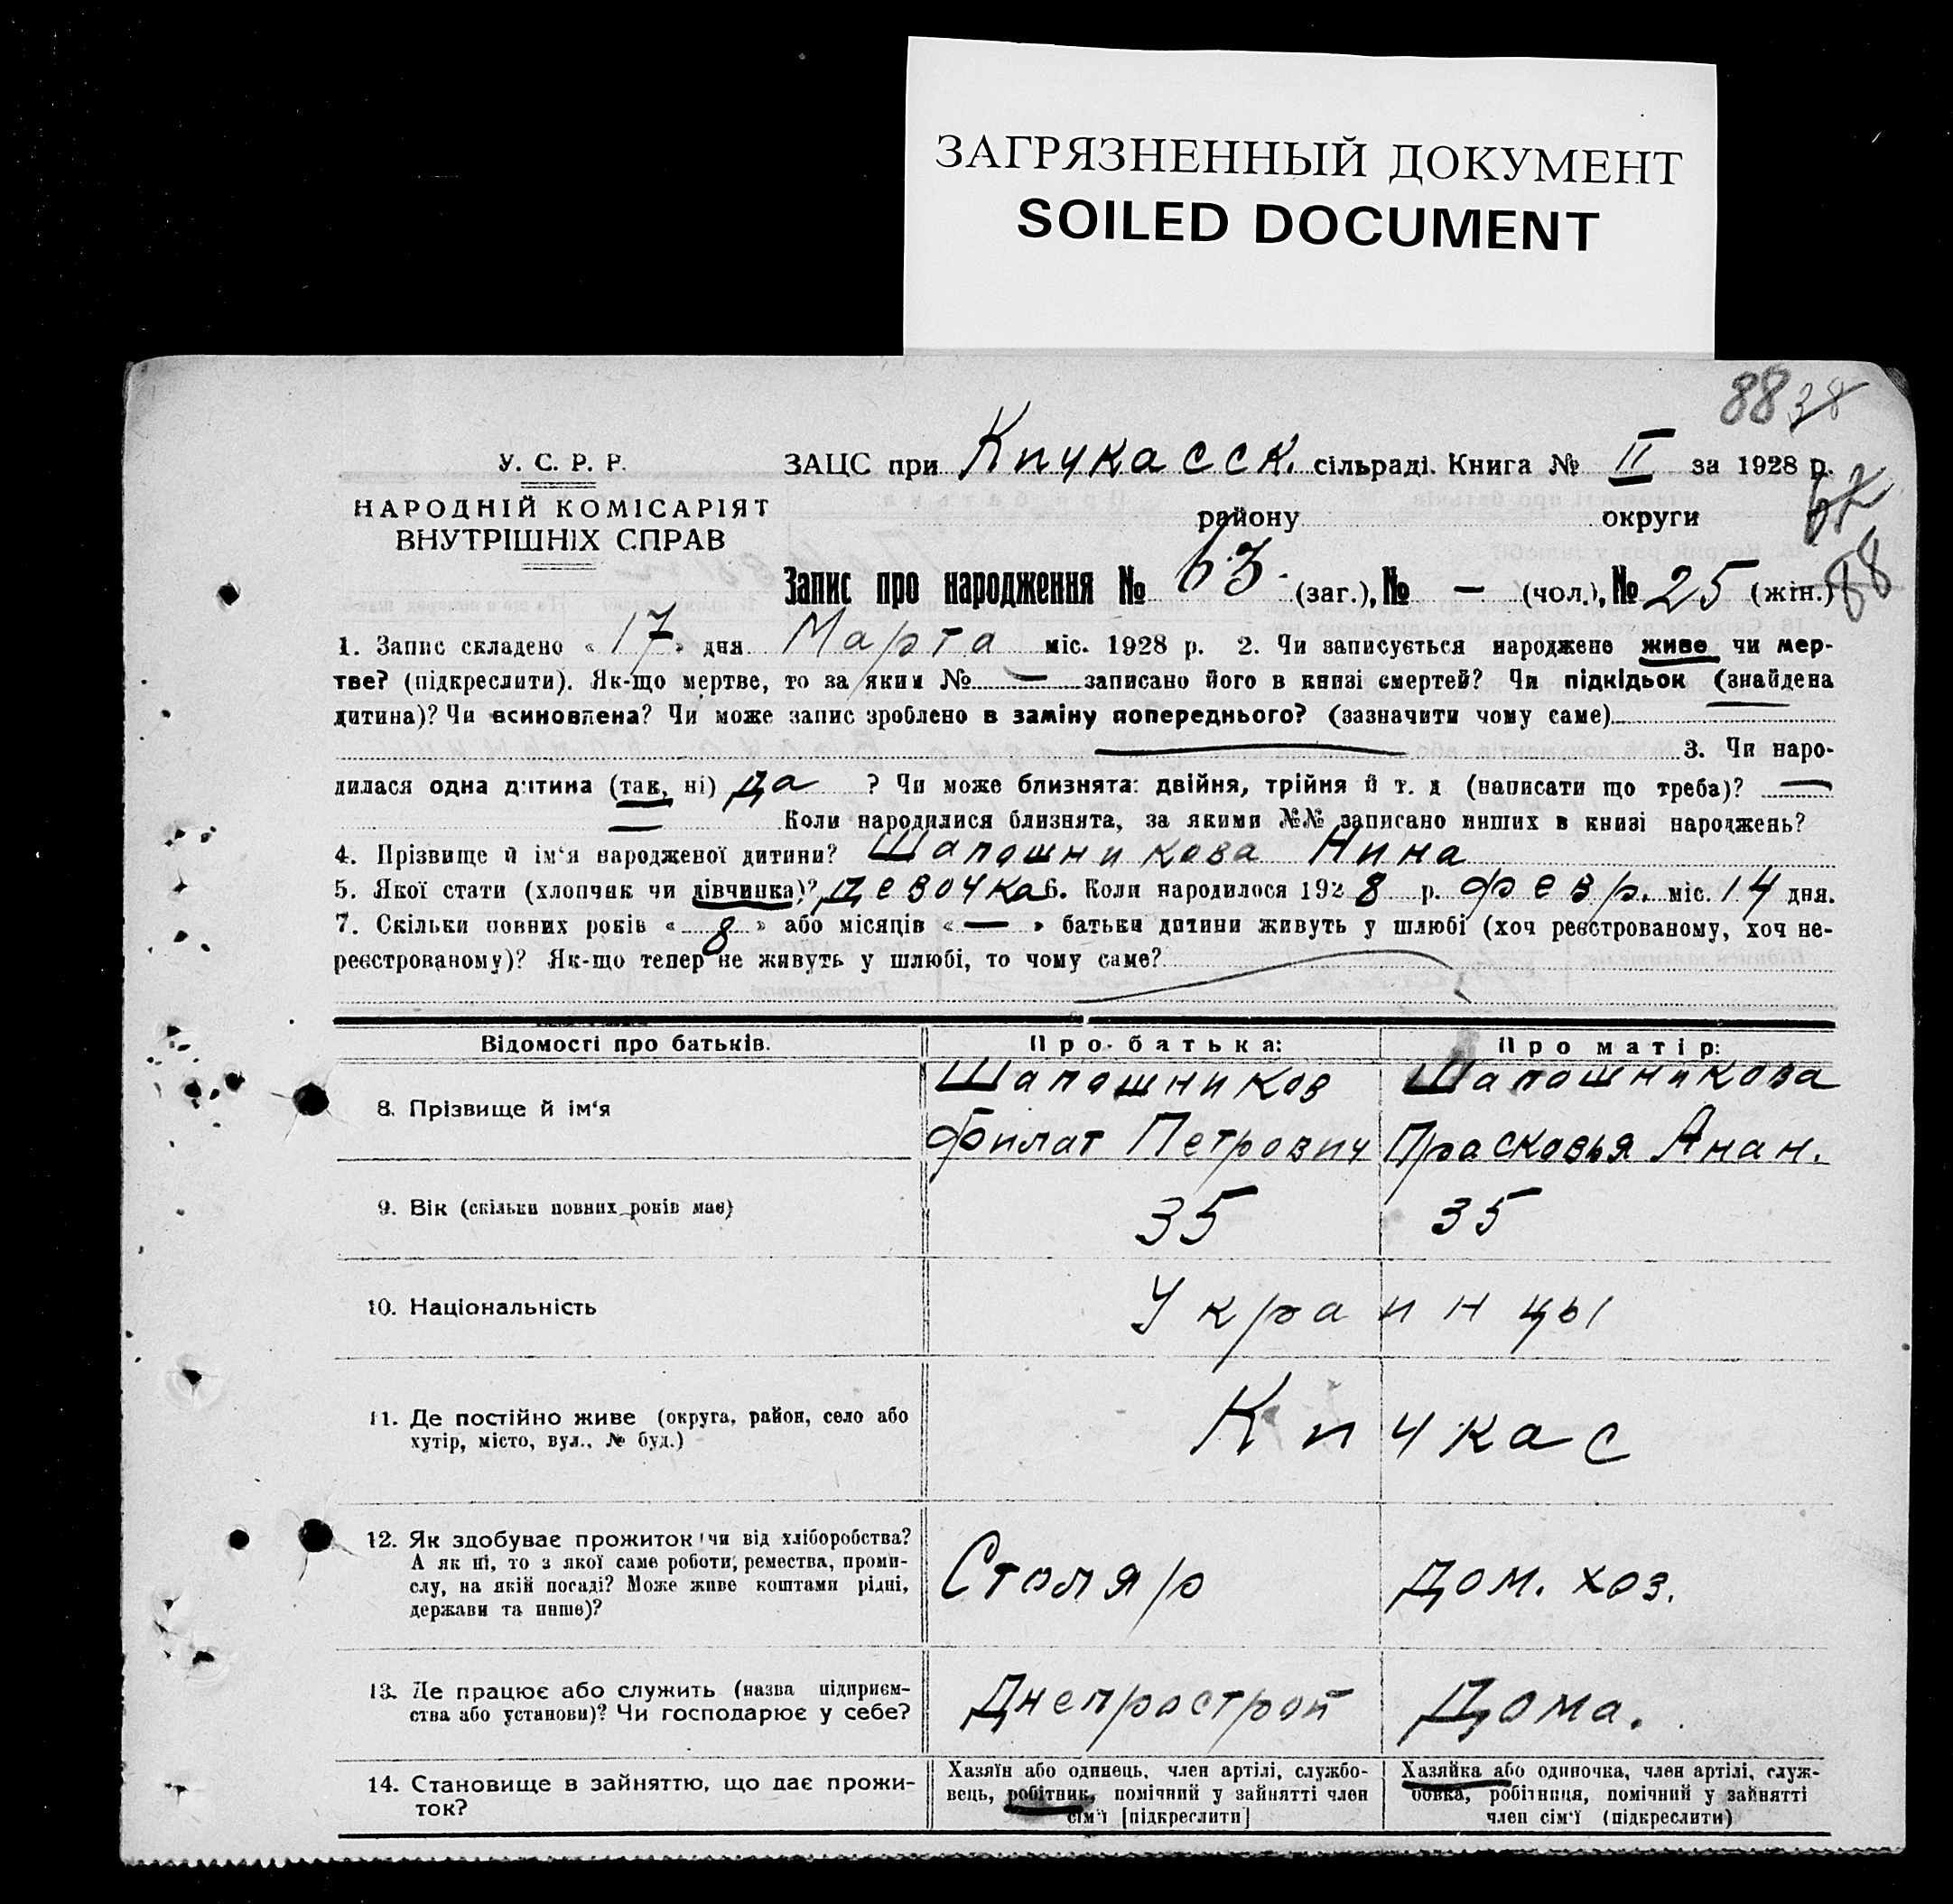 ЗАГРЯЗНЕННЫЙ ДОКУМЕНТ
SOILED DOCUMENT
88 38
У. С. Р. Р.
НАРОДНІЙ КОМІСАРІЯТ
ВНУТРІШНІХ СПРАВ
ЗАЦС при Кичкасск. сільраді. Книга № II за 1928 р.
району округи
88
Запис про народження № 63 (заг.), № — (чол.), № 25 (жін.)
1. Запис складено « 17 » дня Марта міс. 1928 р. 2. Чи записується народжене живе чи мер-
тве? (підкреслити). Як-що мертве, то за яким № — записано його в книзі смертей? Чи підкідьок (знайдена
дитина)? Чи всиновлена? Чи може запис зроблено в заміну попереднього? (зазначити чому саме)
— 3. Чи наро-
дилася одна дитина (так, ні) да ? Чи може близнята: двійня, трійня й т. д (написати що треба)? —
— Коли народилися близнята, за якими №№ записано инших в книзі народжень?
4. Прізвище й ім'я народженої дитини? Шапошникова Нина
5. Якої стати (хлопчик чи дівчинка)? Девочка 6. Коли народилося 1928 р. февр. міс. 14 дня.
7. Скільки повних років « 8 » або місяців « — » батьки дитини живуть у шлюбі (хоч реєстрованому, хоч не-
реєстрованому)? Як-що тепер не живуть у шлюбі, то чому саме?
Відомості про батьків. Про батька: Про матір:
8. Прізвище й ім'я
Шапошников Филат Петрович
Шапошникова Прасковья Анан.
9. Вік (скільки повних років має) 35 35
10. Національність Украинцы
11. Де постійно живе (округа, район, село або
хутір, місто, вул., № буд.)
Кичкас
12. Як здобуває прожиток чи від хліборобства?
А як ні, то з якої саме роботи, ремества, проми-
слу, на якій посаді? Може живе коштами рідні,
держави та инше)?
Столяр Дом. хоз.
13. Де працює або служить (назва підприєм-
ства або установи)? Чи господарює у себе?
Днепрострой Дома.
14. Становище в зайняттю, що дає прожи-
ток?
Хазяїн або одинець, член артілі, службо-
вець, робітник, помічний у зайнятті член
сім'ї [підкреслити]
Хазяйка або одиночка, член артілі, служ-
бовка, робітниця, помічний у зайнятті
член сім'ї (підкреслити)